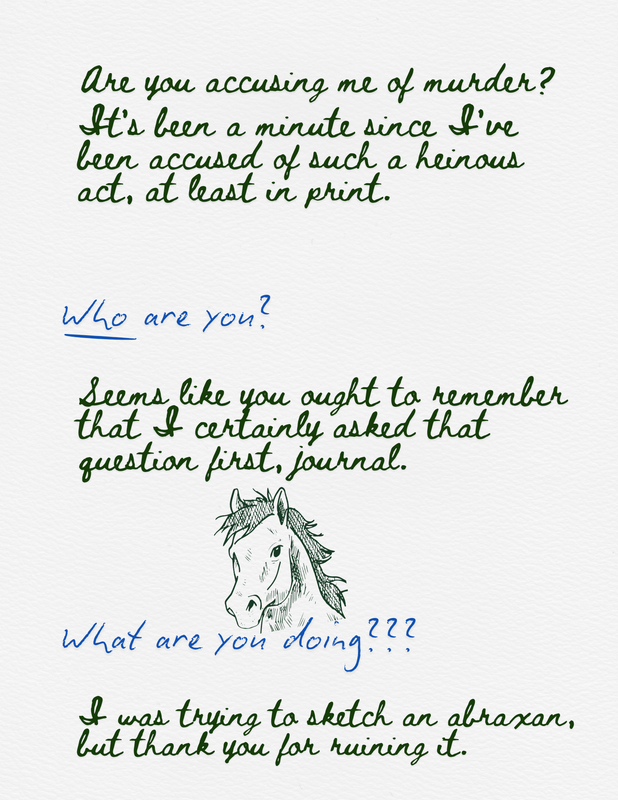 Are you accusing me of murder?
It's been a minute since I've
been accused of such a heinous
act, at least in print.
Who are you?
Seems like you ought to remember
that I certainly asked that
question first, journal.
What are you doing???
I was trying to sketch an abraxan,
but thank you for ruining it.